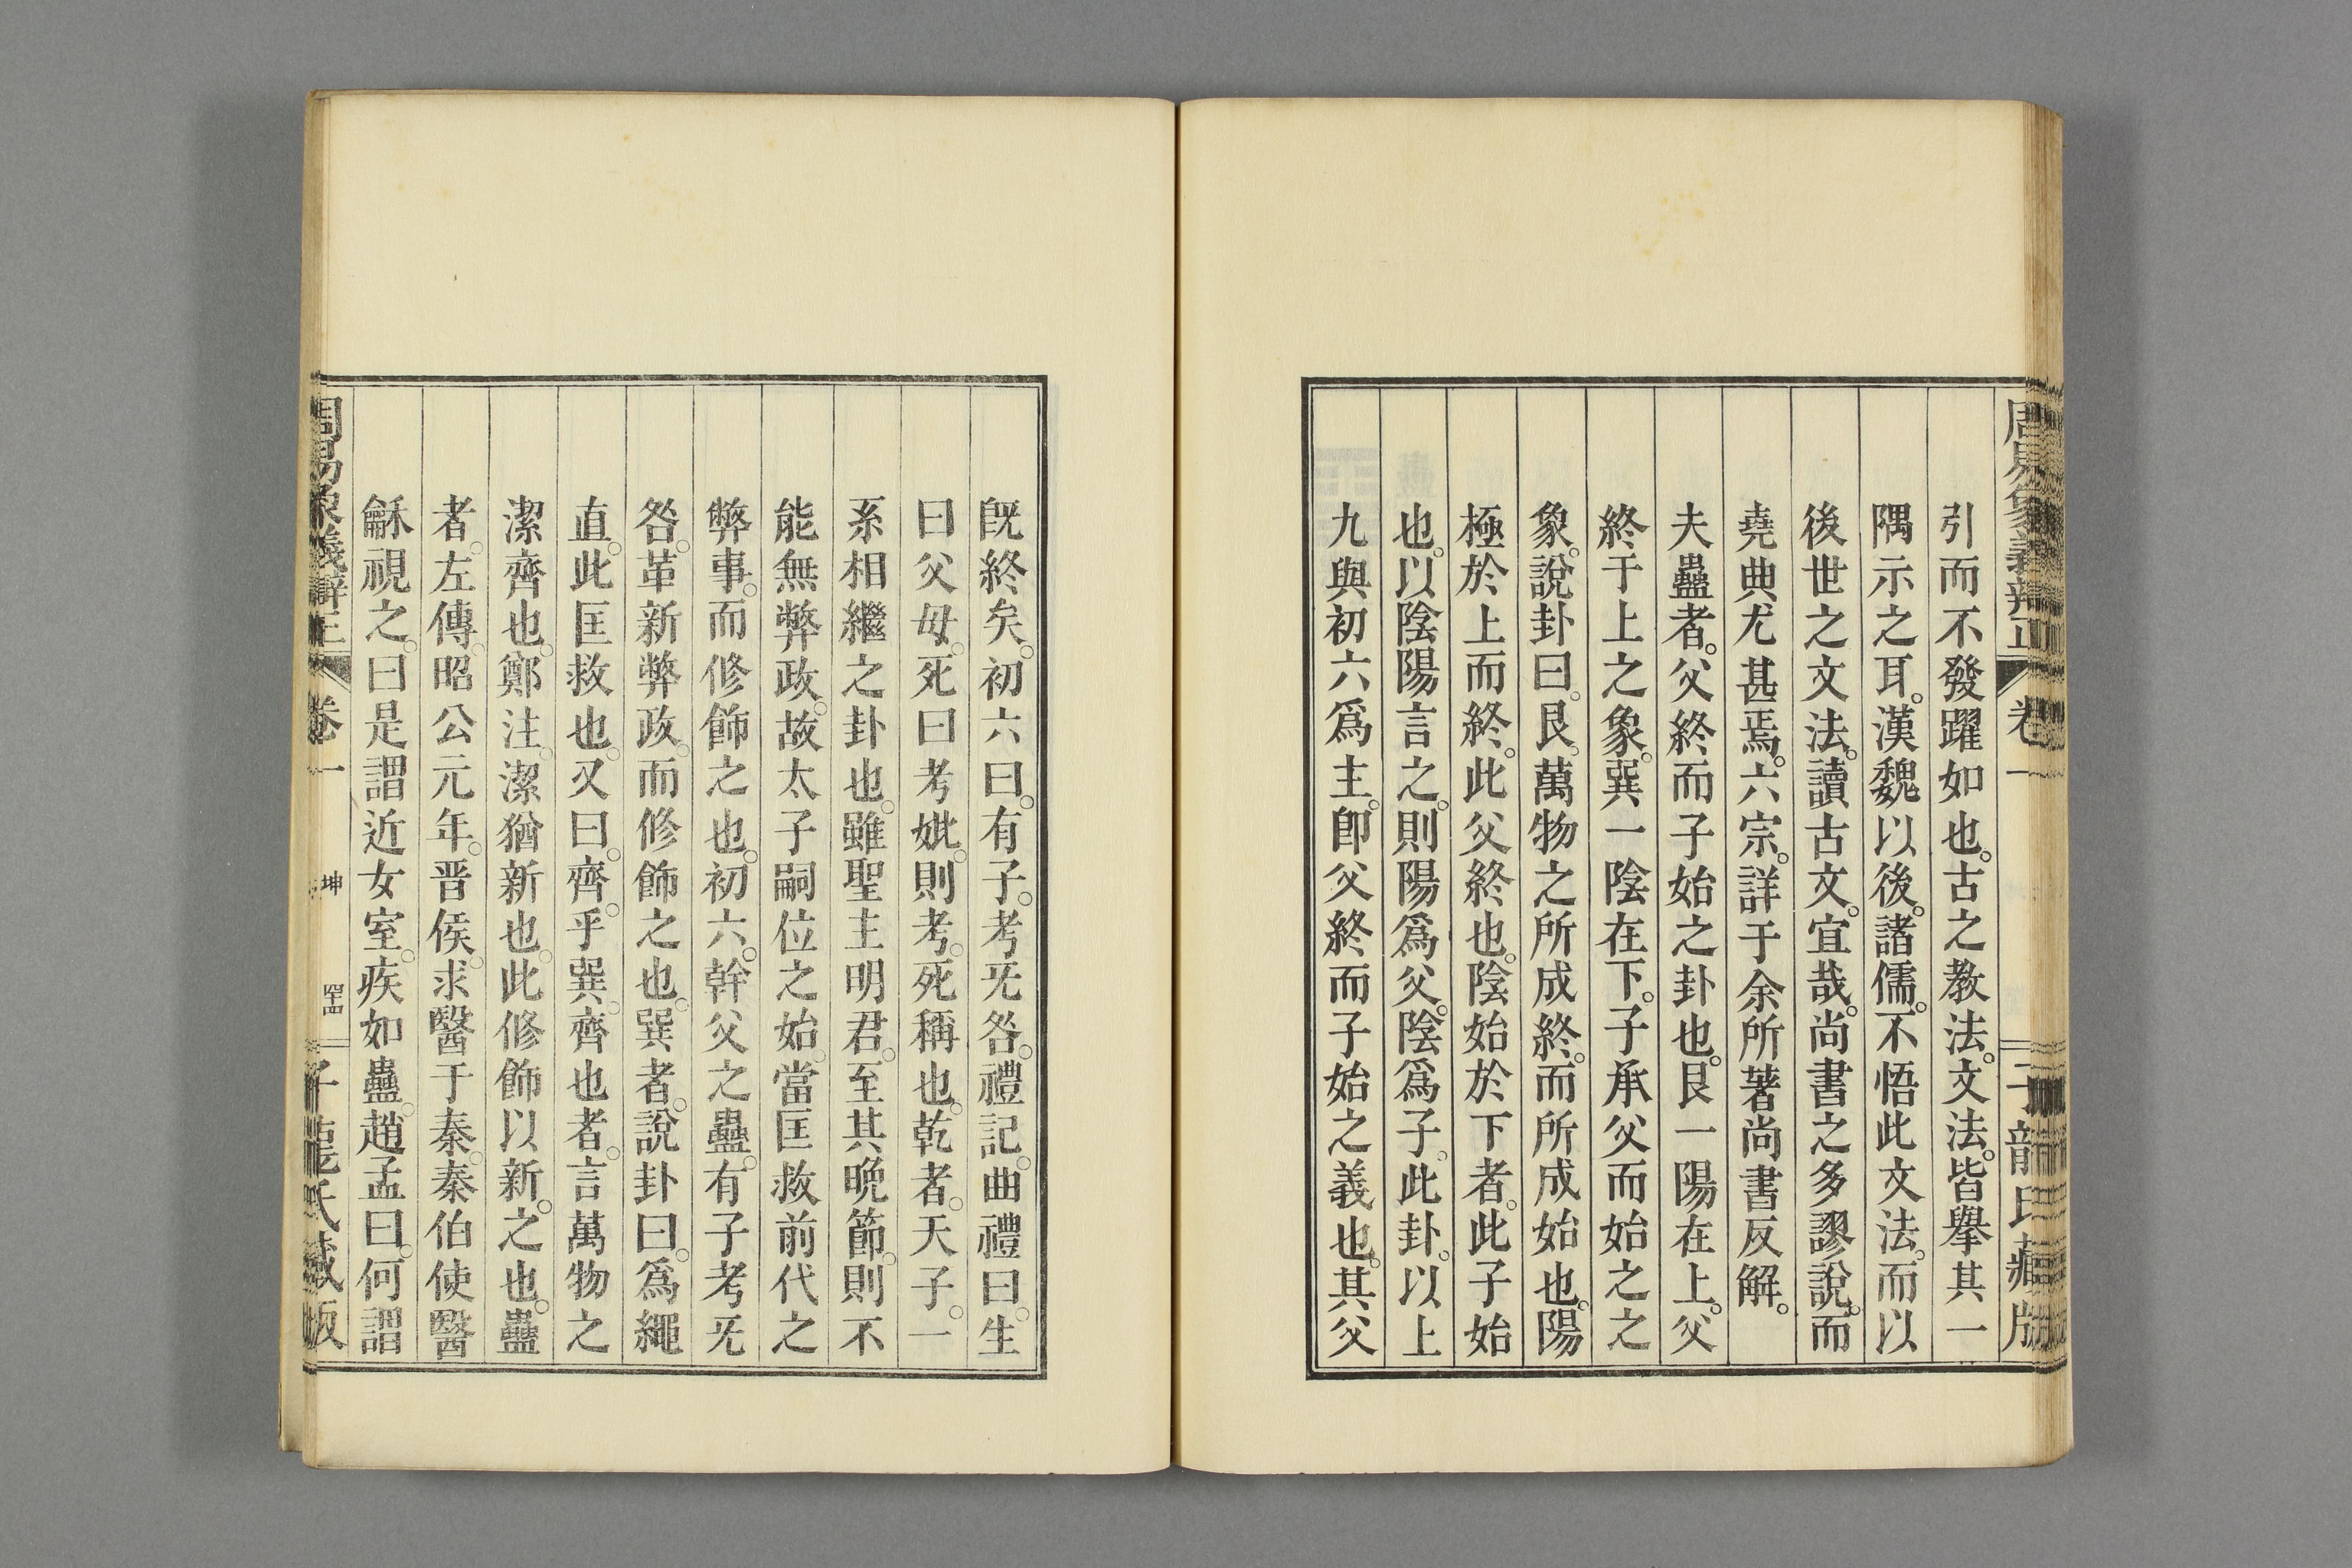 周易象義辯正 卷一 子龍氏藏版
引而不發躍如也。古之教法。文法。皆擧其一
隅示之耳。漢魏以後。諸儒。不悟此文法。而以
後世之文法。讀古文。宜哉。尚書之多謬說。而
堯典尤甚焉。六宗。詳于余所著尚書反解。
夫蠱者。父終而子始之卦也。艮一陽在上。父
終于上之象。巽一陰在下。子承父而始之之
象。說卦曰。艮。萬物之所成終。而所成始也。陽
極於上而終。此父終也。陰始於下者。此子始
也。以陰陽言之。則陽爲父。陰爲子。此卦。以上
九與初六爲主。卽父終而子始之義也。其父
旣終矣。初六曰。有子。考旡咎。禮記。曲禮曰。生
曰父母。死曰考妣。則考。死稱也。乾者。天子。一
系相繼之卦也。雖聖主明君。至其晩節。則不
能無弊政。故太子嗣位之始。當匡救前代之
弊事。而修飾之也。初六。幹父之蠱。有子考旡
咎。革新弊政。而修飾之也。巽者。說卦曰。爲繩
直。此匡救也。又曰。齊。乎巽。齊也者。言萬物之
潔齊也。鄭注。潔猶新也。此修飾以新。之也。蠱
者。左傳。昭公元年。晋侯。求醫于秦。秦伯使醫
龢視之。曰是謂近女室。疾如蠱。趙孟曰。何謂
周易象義辯正 卷一 坤 四十四 子龍氏藏版